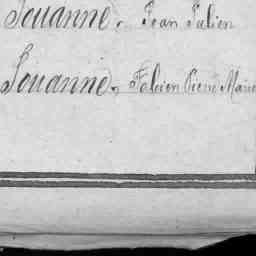 Jouanne, Jean Julien
Jouanne, Fabien Pierre Marie